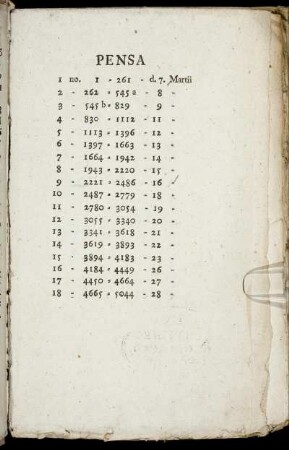 PENSA
1 no. 1 - 261 - d. 7. Martii
2 - 262 - 545 a - 8 -
3 - 545 b - 829 - 9 -
4 - 830 - 1112 - 11 -
5 - 1113 - 1396 - 12 -
6 - 1397 - 1663 - 13 -
7 - 1664 - 1942 - 14 -
8 - 1943 - 2220 - 15 -
9 - 2221 - 2486 - 16 -
10 - 2487 - 2779 - 18 -
11 - 2780 - 3054 - 19 -
12 - 3055 - 3340 - 20 -
13 - 3341 - 3618 - 21 -
14 - 3619 - 3893 - 22 -
15 - 3894 - 4183 - 23 -
16 - 4184 - 4449 - 26 -
17 - 4450 - 4664 - 27 -
18 - 4665 - 5044 - 28 -